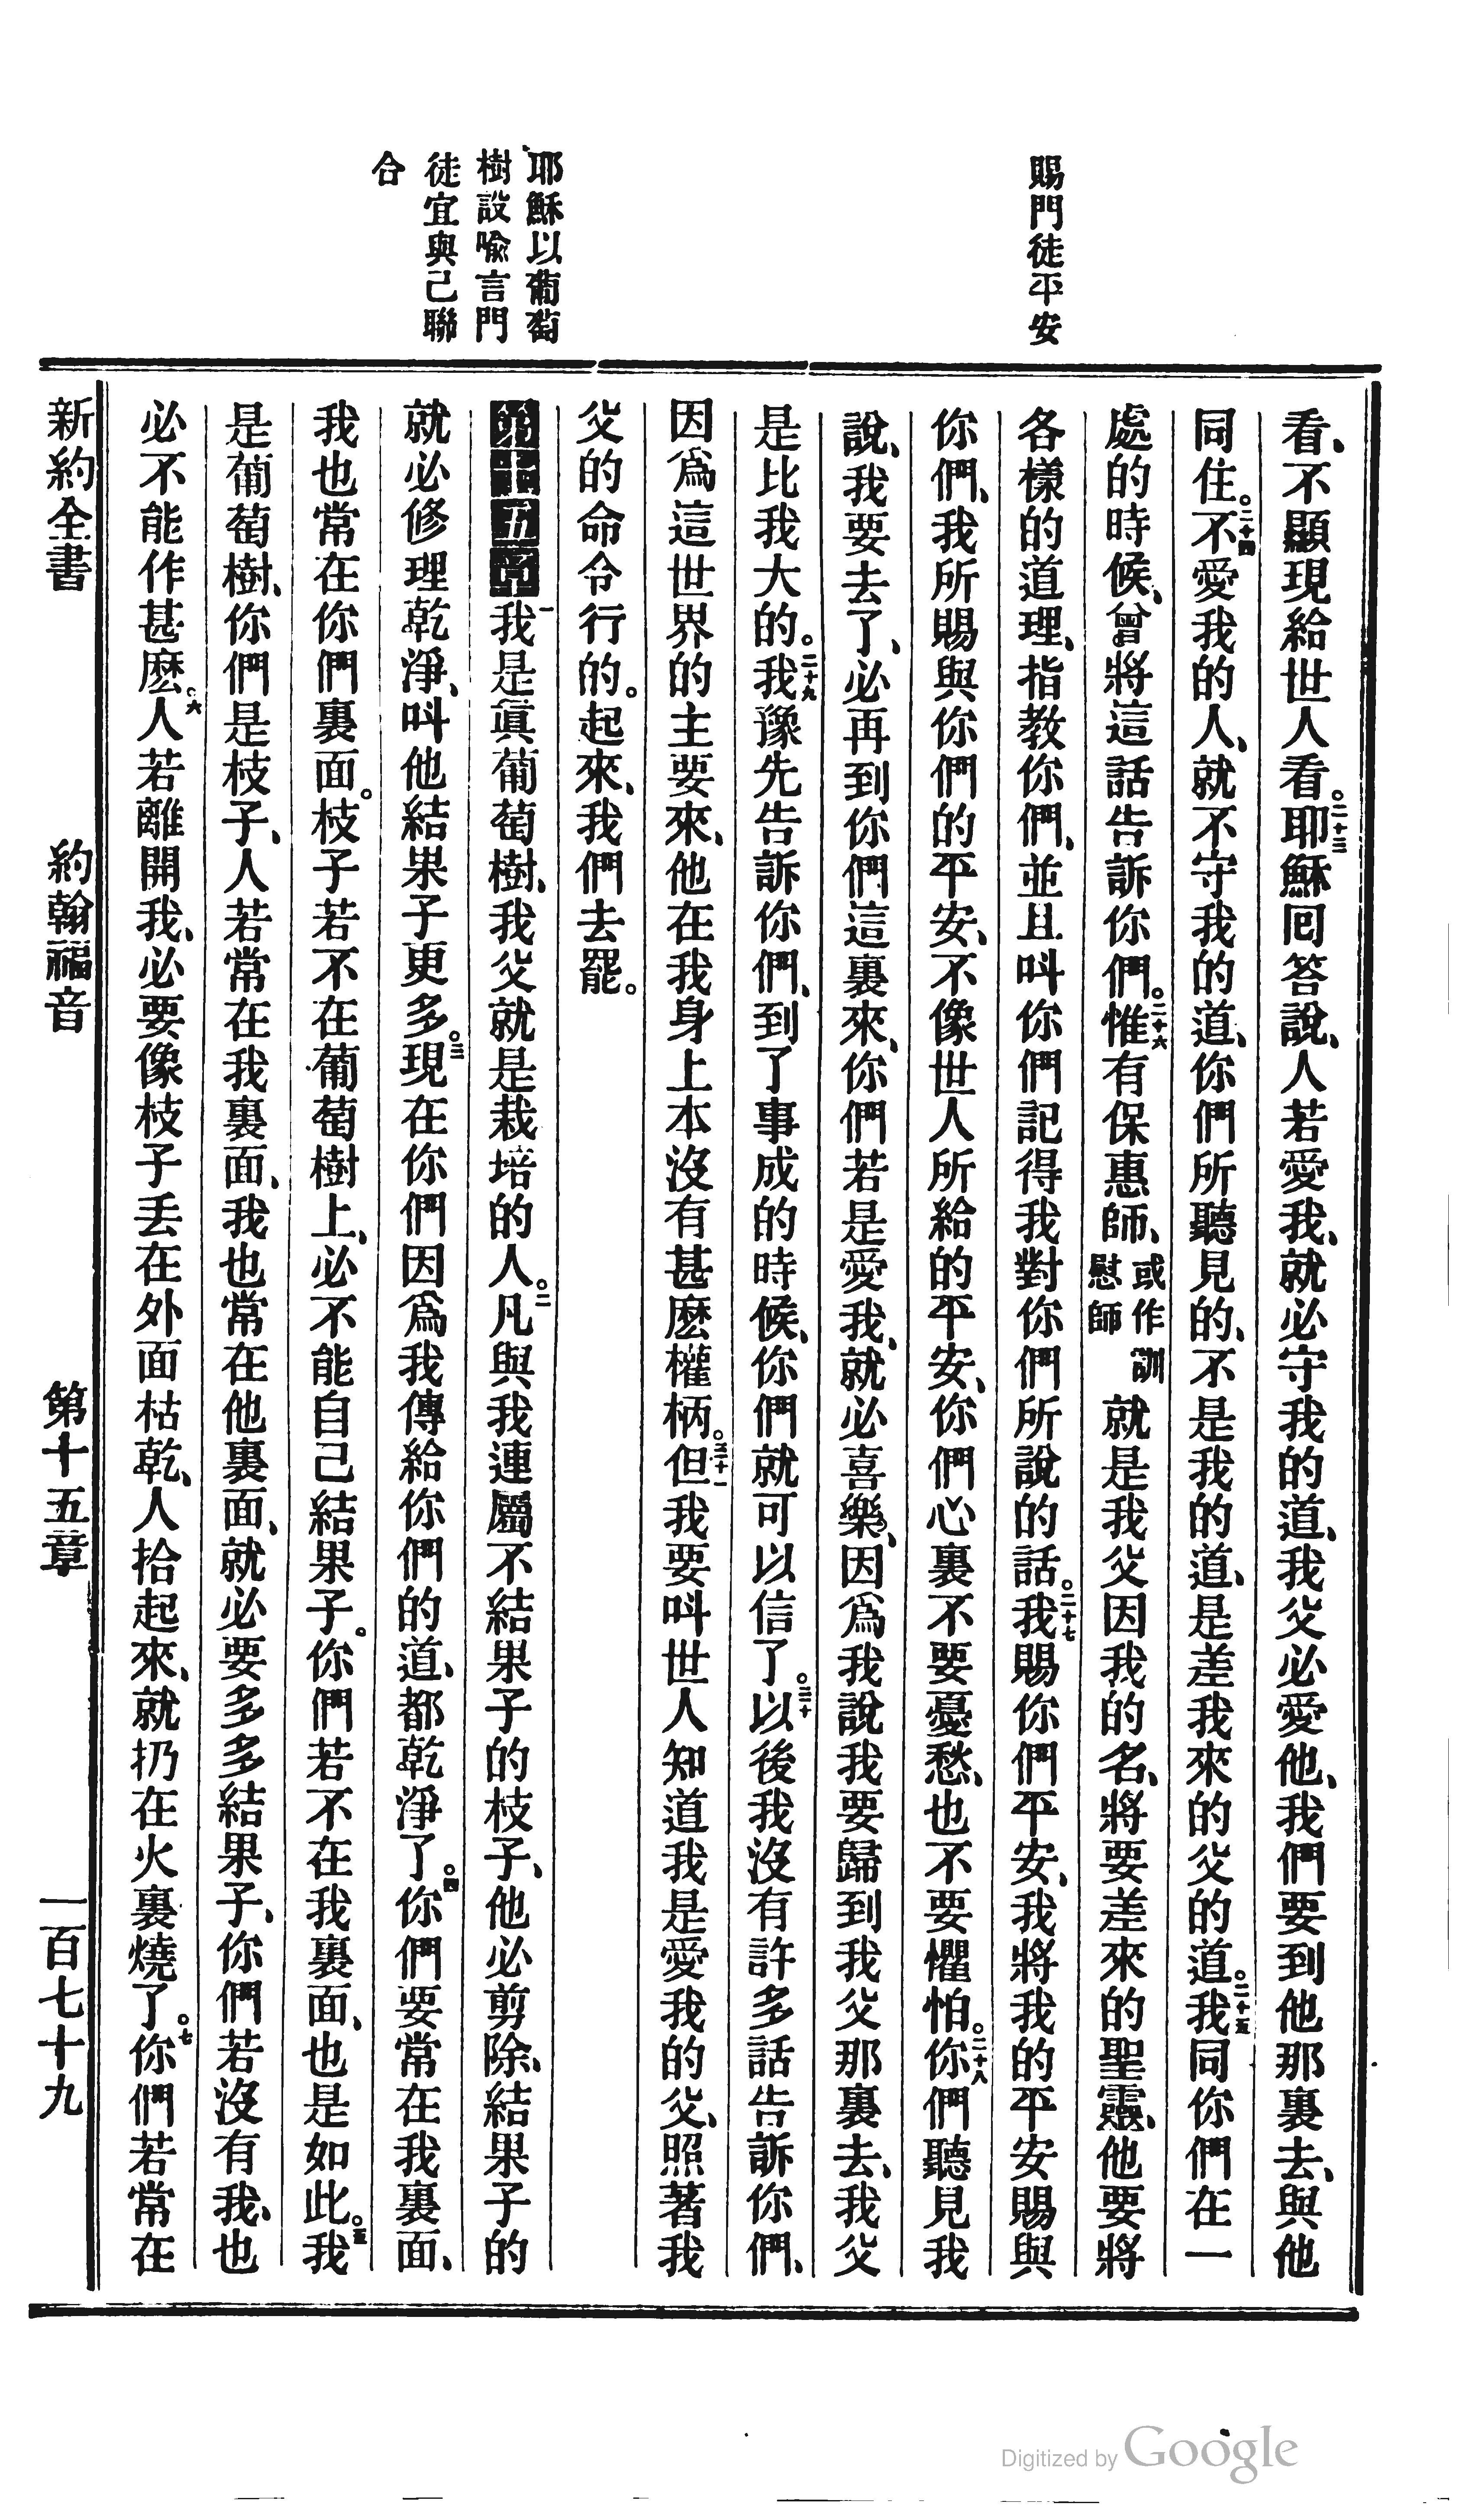 賜門徒平安
耶穌以葡萄
樹設喩言門
徒宜與己聯
合
看、不顯現給世人看。二十三耶穌回答說、人若愛我、就必守我的道、我父必愛他、我們要到他那裏去、與他
同住。二十四不愛我的人、就不守我的道、你們所聽見的、不是我的道、是差我來的父的道。二十五我同你們在一
處的時候、曾將這話告訴你們。二十六惟有保惠師、或作訓慰師就是我父因我的名、將要差來的聖靈、他要將
各樣的道理、指教你們、並且呌你們記得我對你們所說的話。二十七我賜你們平安、我將我的平安賜與
你們、我所賜與你們的平安、不像世人所給的平安、你們心裏不要憂愁、也不要懼怕。二十八你們聽見我
說、我要去了、必再到你們這裏來、你們若是愛我、就必喜樂、因爲我說我要歸到我父那裏去、我父
是比我大的。二十九我豫先告訴你們、到了事成的時候、你們就可以信了。三十以後我沒有許多話告訴你們、
因爲這世界的主要來、他在我身上本沒有甚麽權柄。三十一但我要呌世人知道我是愛我的父、照著我
父的命令行的。起來、我們去罷。
第十五章一我是眞葡萄樹、我父就是栽培的人。二凡與我連屬不結果子的枝子、他必剪除、結果子的
就必修理乾淨、呌他結果子更多。三現在你們因爲我傳給你們的道、都乾淨了。四你們要常在我裏面、
我也常在你們裏面。枝子若不在葡萄樹上、必不能自己結果子。你們若不在我裏面、也是如此。五我
是葡萄樹、你們是枝子、人若常在我裏面、我也常在他裏面、就必要多多結果子、你們若沒有我、也
必不能作甚麽。六人若離開我、必要像枝子丢在外面枯乾、人拾起來、就扔在火裏燒了。七你們若常在
新約全書 約翰福音 第十五章 一百七十九
Digitized by Google